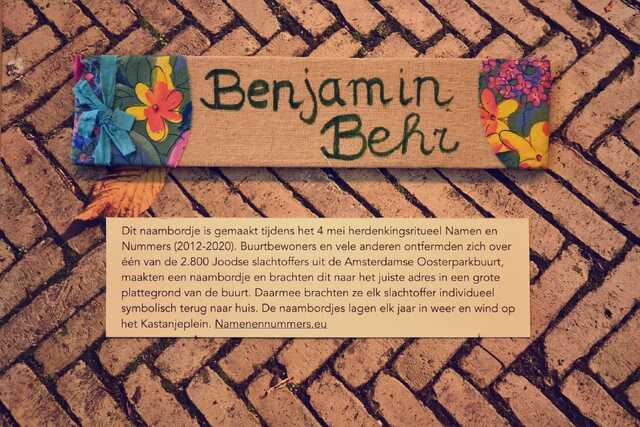 Benjamin
Behr
Dit naambordje is gemaakt tijdens het 4 mei herdenkingsritueel Namen en
Nummers (2012-2020). Buurtbewoners en vele anderen ontfermden zich over
één van de 2.800 Joodse slachtoffers uit de Amsterdamse Oosterparkbuurt,
maakten een naambordje en brachten dit naar het juiste adres in een grote
plattegrond van de buurt. Daarmee brachten ze elk slachtoffer individueel
symbolisch terug naar huis. De naambordjes lagen elk jaar in weer en wind op
het Kastanjeplein. Namenennummers.eu